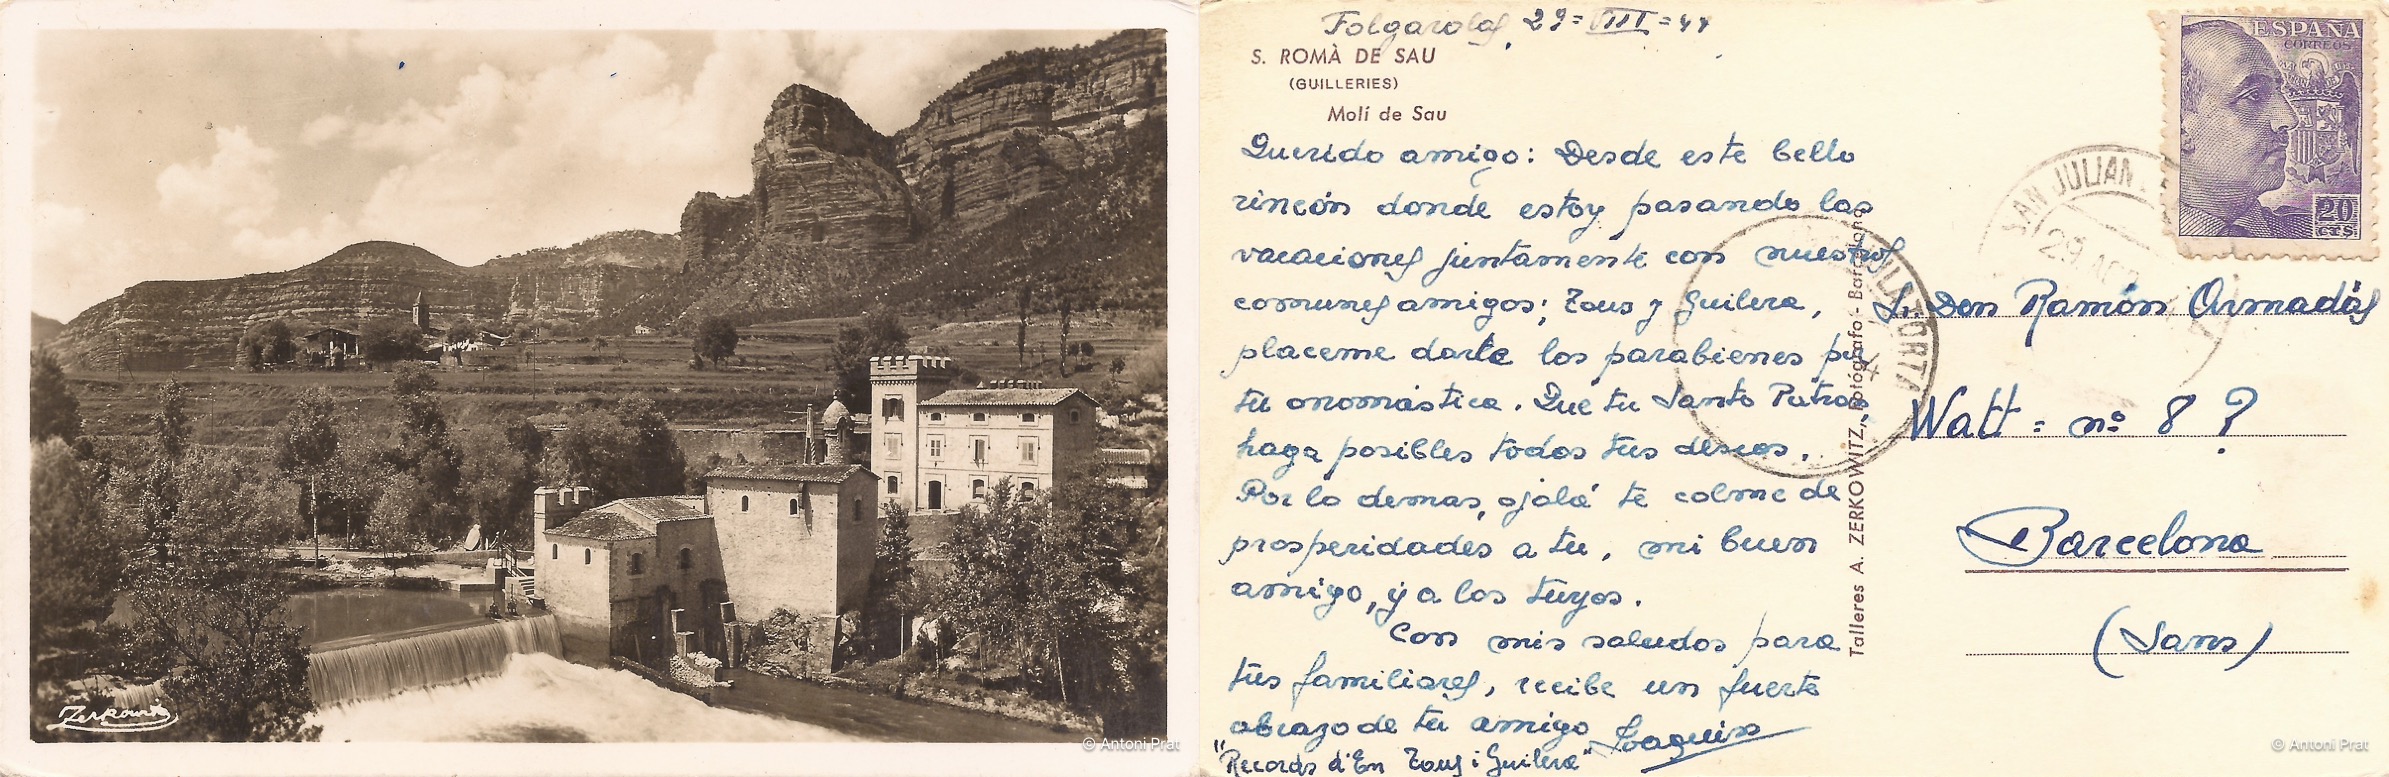 Zerkowitz
© Antoni Prat
Folgarolas, 29=VIII=44
S. ROMÀ DE SAU
(GUILLERIES)
Molí de Sau
Querido amigo: Desde este bello
rincón donde estoy pasando las
vacaciones juntamente con nuestros
comunes amigos; Tous y Guilera,
placeme darte los parabienes por
tu onomástica. Que tu Santo Patrón,
haga posibles todos tus deseos.
Por lo demas, ojalá te colme de
prosperidades a tu, mi buen
amigo, y a los tuyos.
Con mis saludos para
tus familiares, recibe un fuerte
abrazo de tu amigo Joaquin
"Records d'En Tous i Guilera"
Talleres A. ZERKOWITZ, Fotógrafo - Barcelona
ESPAÑA
CORREOS
20
CTS.
SAN JULIAN
29 AGO
VILATORTA
Sr. Don Ramón Armadás
Watt = nº 8 ?
Barcelona
(Sans)
© Antoni Prat